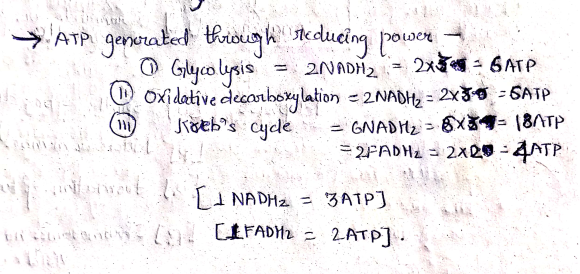 → ATP generated through reducing power —
① Glycolysis = 2NADH2 = 2x3 = 6ATP
ⓘⓘ Oxidative decarboxylation = 2NADH2 = 2x3 = 6ATP
ⓘⓘⓘ Kreb's cycle = 6NADH2 = 6x3 = 18ATP
= 2FADH2 = 2x2 = 4ATP
[1 NADH2 = 3ATP]
[1FADH2 = 2ATP].